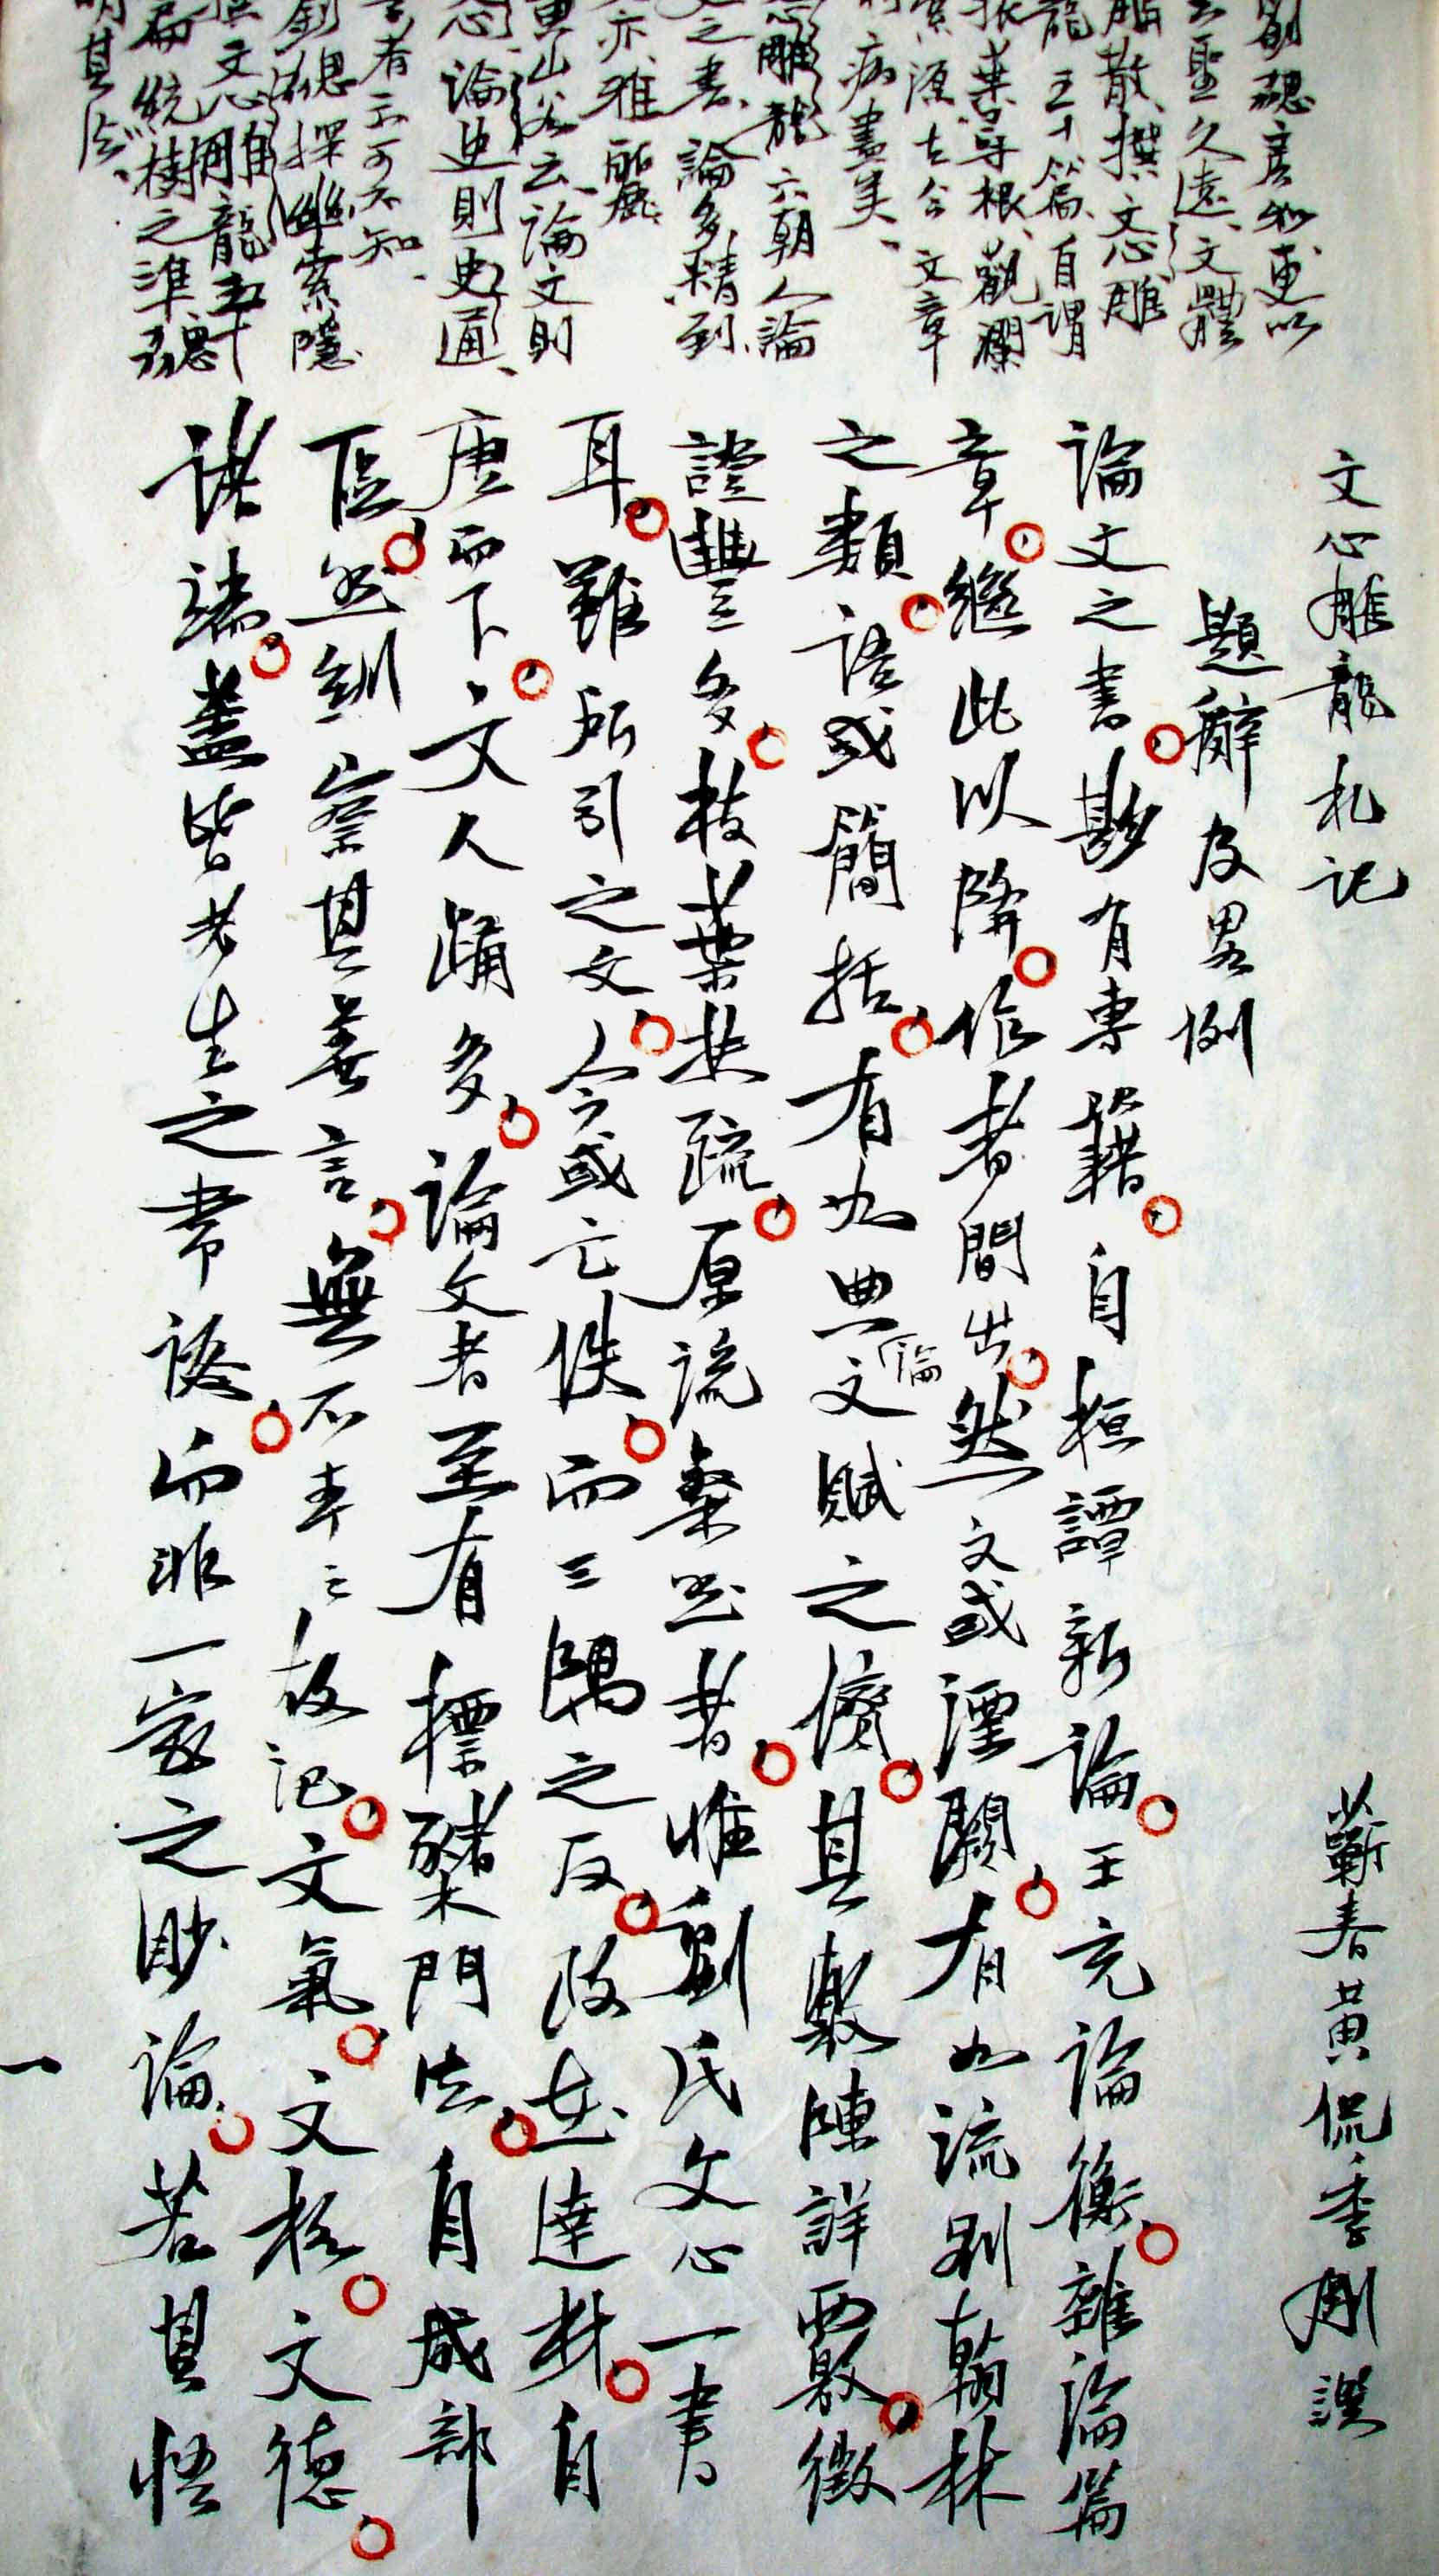 文心雕龍札記 蘄春黃侃季剛譔
題辭及畧例
論文之書尠有專籍自桓譚新論王充論衡雜論篇
章繼此以降作者間出然文或湮闕有如流別翰林
之類語或簡括有如典論文賦之儕其敷陳詳覈徵
證豐多枝葉扶疏原流粲然者惟劉氏文心一書
耳雖所引之文今或亡佚而三隅之反政在達材自
唐而下文人踊多論文者至有標櫫門法自成部
區然紃察其善言無不本之故記文氣文格文德
諸端蓋皆老生之常談而非一家之眇論若其悟
一
劉勰彥和更以
去聖久遠文體
解散撰文心雕
龍五十篇自謂
振葉尋根觀瀾
索源古今文章
病盡矣
心雕龍六朝人論
文之書論多精到
文亦雅麗
黃山谷云論文則
文心論史則史通
學者不可不知
劉勰探幽索隱
撰文心雕龍五十
篇統樹之準勰
明其